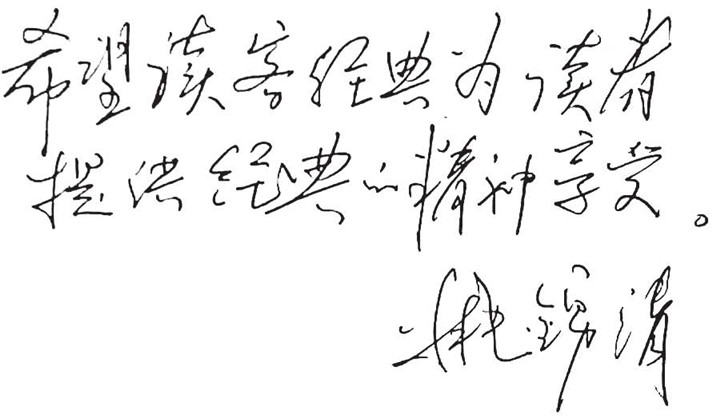 希望读客经典为读者
提供经典的精神享受。
姚锦清